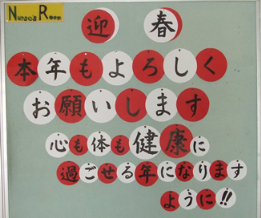 Nurse's Room
迎春
本年もよろしく
お願いします
心も体も健康に
過ごせる年になります
ように!!